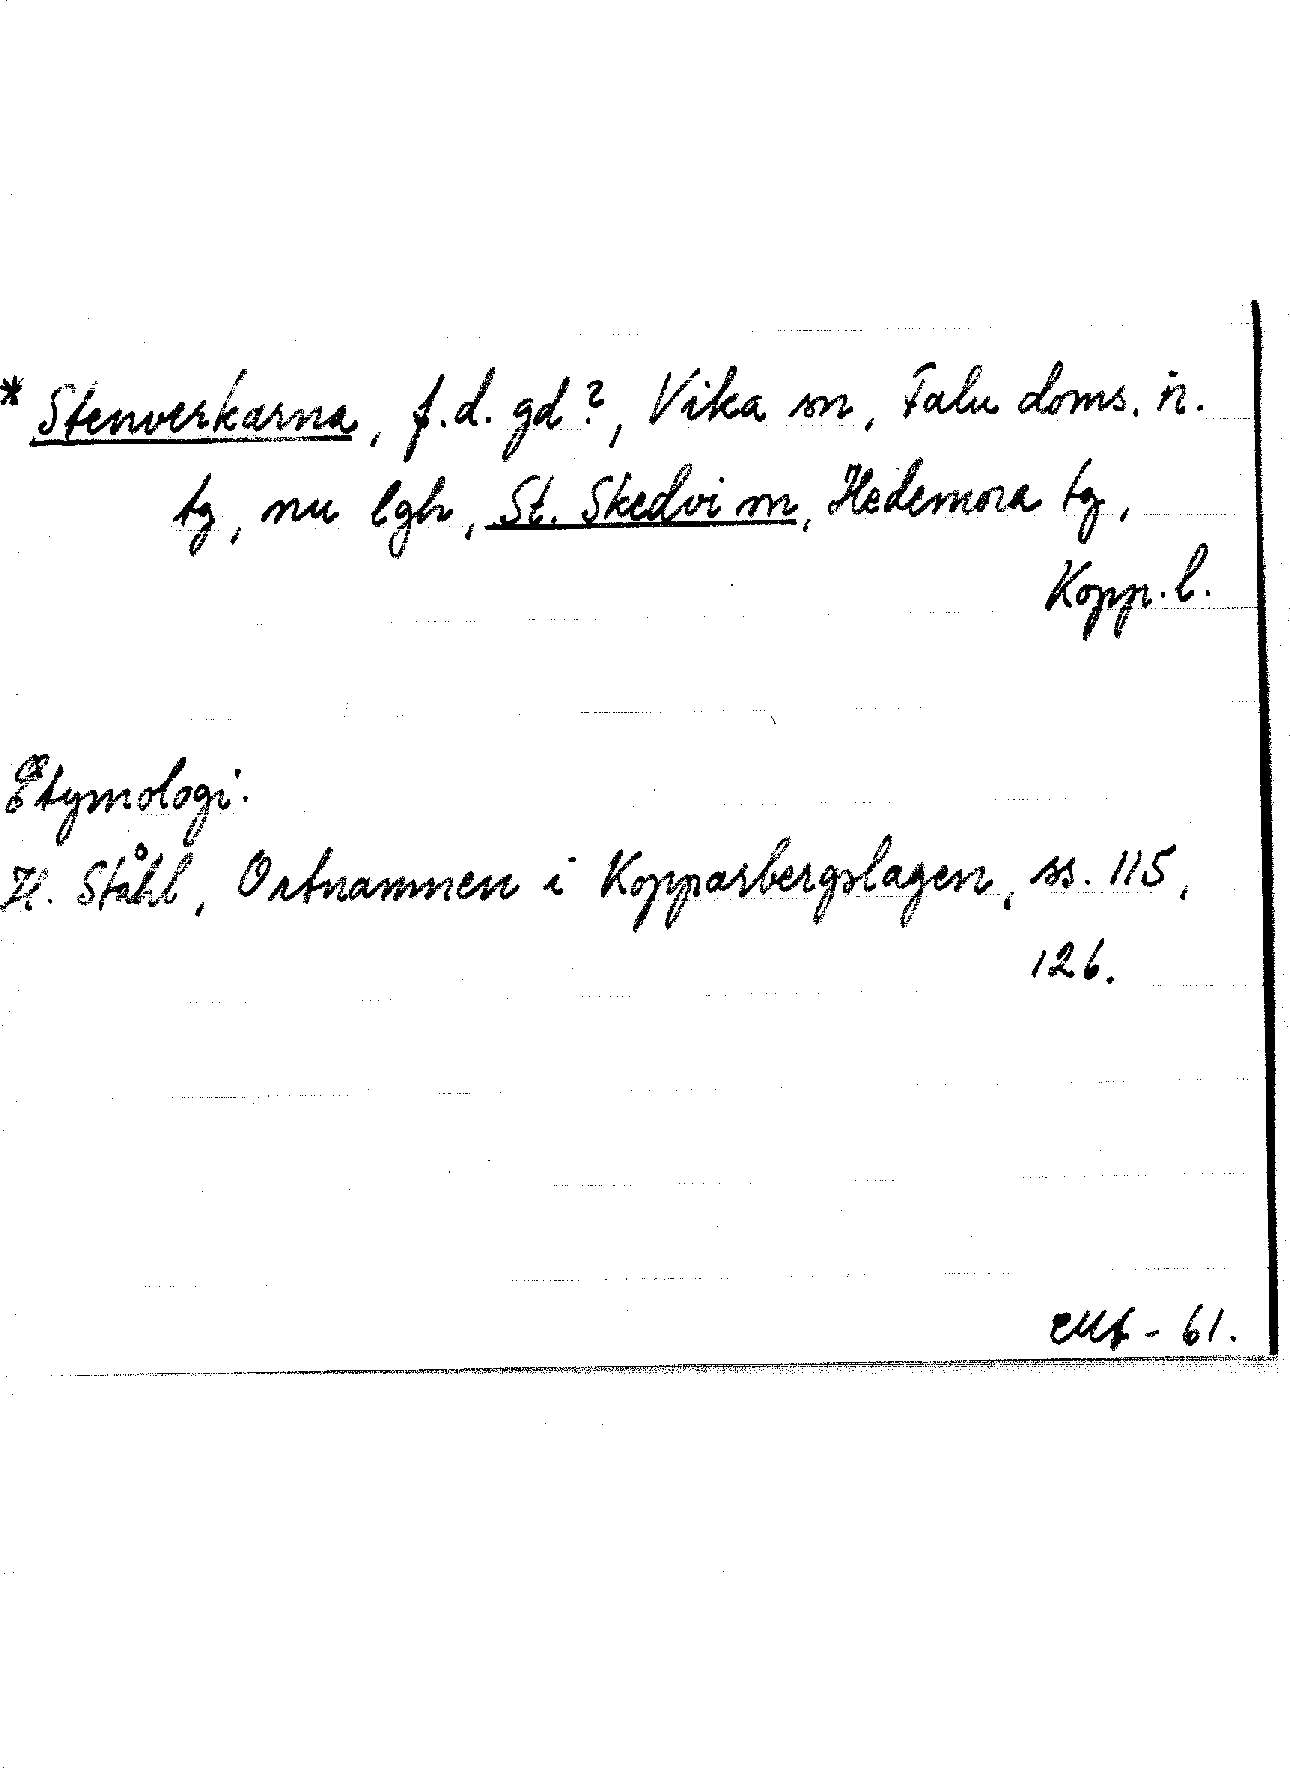 * Stenverkarna, f.d. gd?, Vika sn, Falu doms. n.
tg, nu lgh, St. Skedvi sn, Hedemora tg,
Kopp. l.
Etymologi:
H. Ståhl, Ortnamnen i Kopparbergslagen, ss. 115,
126.
- 61.